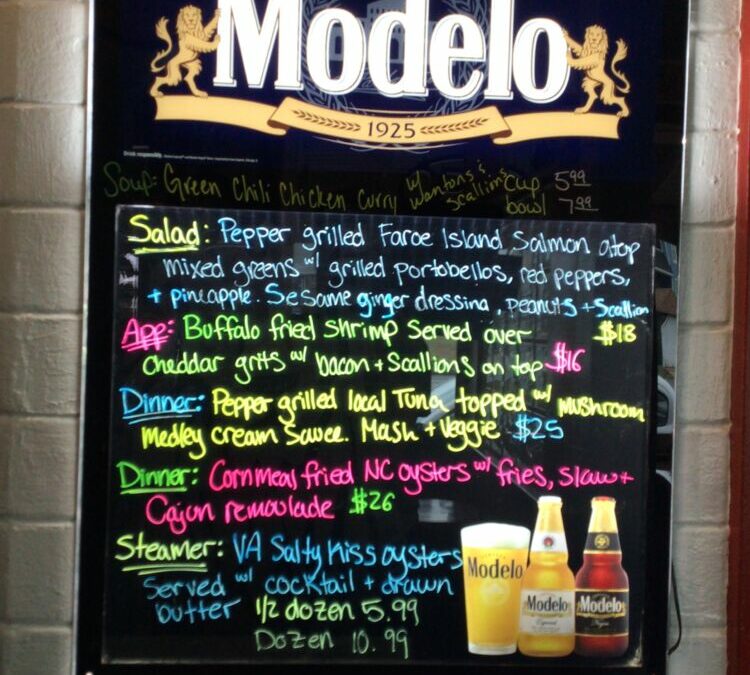 Modelo
1925
Drink responsibly.
Soup: Green Chili Chicken Curry w/ Wantons & Scallions cup 5.99
bowl 7.99
Salad: Pepper grilled Faroe Island Salmon atop
mixed greens w/ grilled portobellos, red peppers,
+ pineapple. Sesame ginger dressing, peanuts + Scallion
$18
App: Buffalo fried shrimp served over
cheddar grits w/ bacon + Scallions on top $16
Dinner: Pepper grilled local Tuna topped w/ mushroom
medley cream sauce. Mash + Veggie $25
Dinner: Cornmeal fried NC oysters w/ fries, slaw +
Cajun remoulade $26
Steamer: VA Salty Kiss oysters
served w/ cocktail + drawn
butter 1/2 dozen 5.99
Dozen 10.99
Modelo
Modelo
Especial
Modelo
Negra